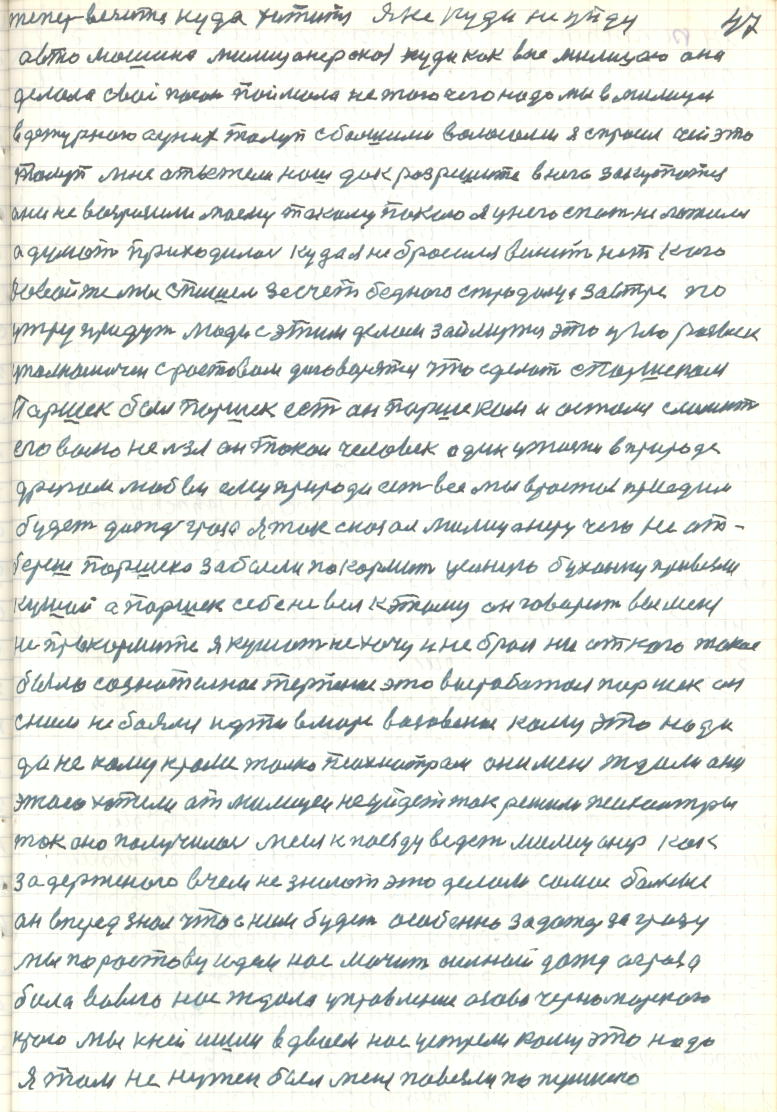 тепер вечится куда хотити я не куди не уйду 47
авто машина милиционерская куди как вие милицию она
делала свое погон поймала не того чего надо мы в милици
в дежурного лунит талуп с большими волосами я спросил чей это
талуп мне ответели наш дак разрешите в него закутатся
они не возразили моему такому покою я у него спат не ложился
а думат приходилос куда я не бросился винит нет кого
бовсё же мы спишем за счет бедного страдалца завтра по
утру придут люди с этим делом займутся это цело развоск
уполномочен с ростовом договорятся что сделат с Паршеком
Паршек был паршек ест он паршеком и остался сломит
его волю не лзя он такой человек один у жизни в природе
другом любви ему природа ест все мы в ростов приедим
будет дождь гроза я так сказал милиционеру чего не от-
береш паршека забыли покормит целиную буханку привезли
кушай а паршек себе не вел к этому он говорит вы меня
не прокормите я кушат не хочу и не брал ни от кого такое
было сознателное терпение это выработал паршек он
с ним не боялся идти в море вазовение кому это нада
да не кому кроме толко психиатрам они меня ждали они
этого хотели от милицеи не уйдет так решили психиатры
так оно получилос меня к поезду ведет милиционер как
задерженого в чем не знают это делали самое больние
он вперед знал что с ним будет особенно за дождь за грозу
мы по ростову идем нас мочит силный дожд а гроза
била вовсю нас ждала управление азова черноморского
края мы к ней ишли в двоем нас устрели кому это надо
я там не нужен был меня повезли по пушкино